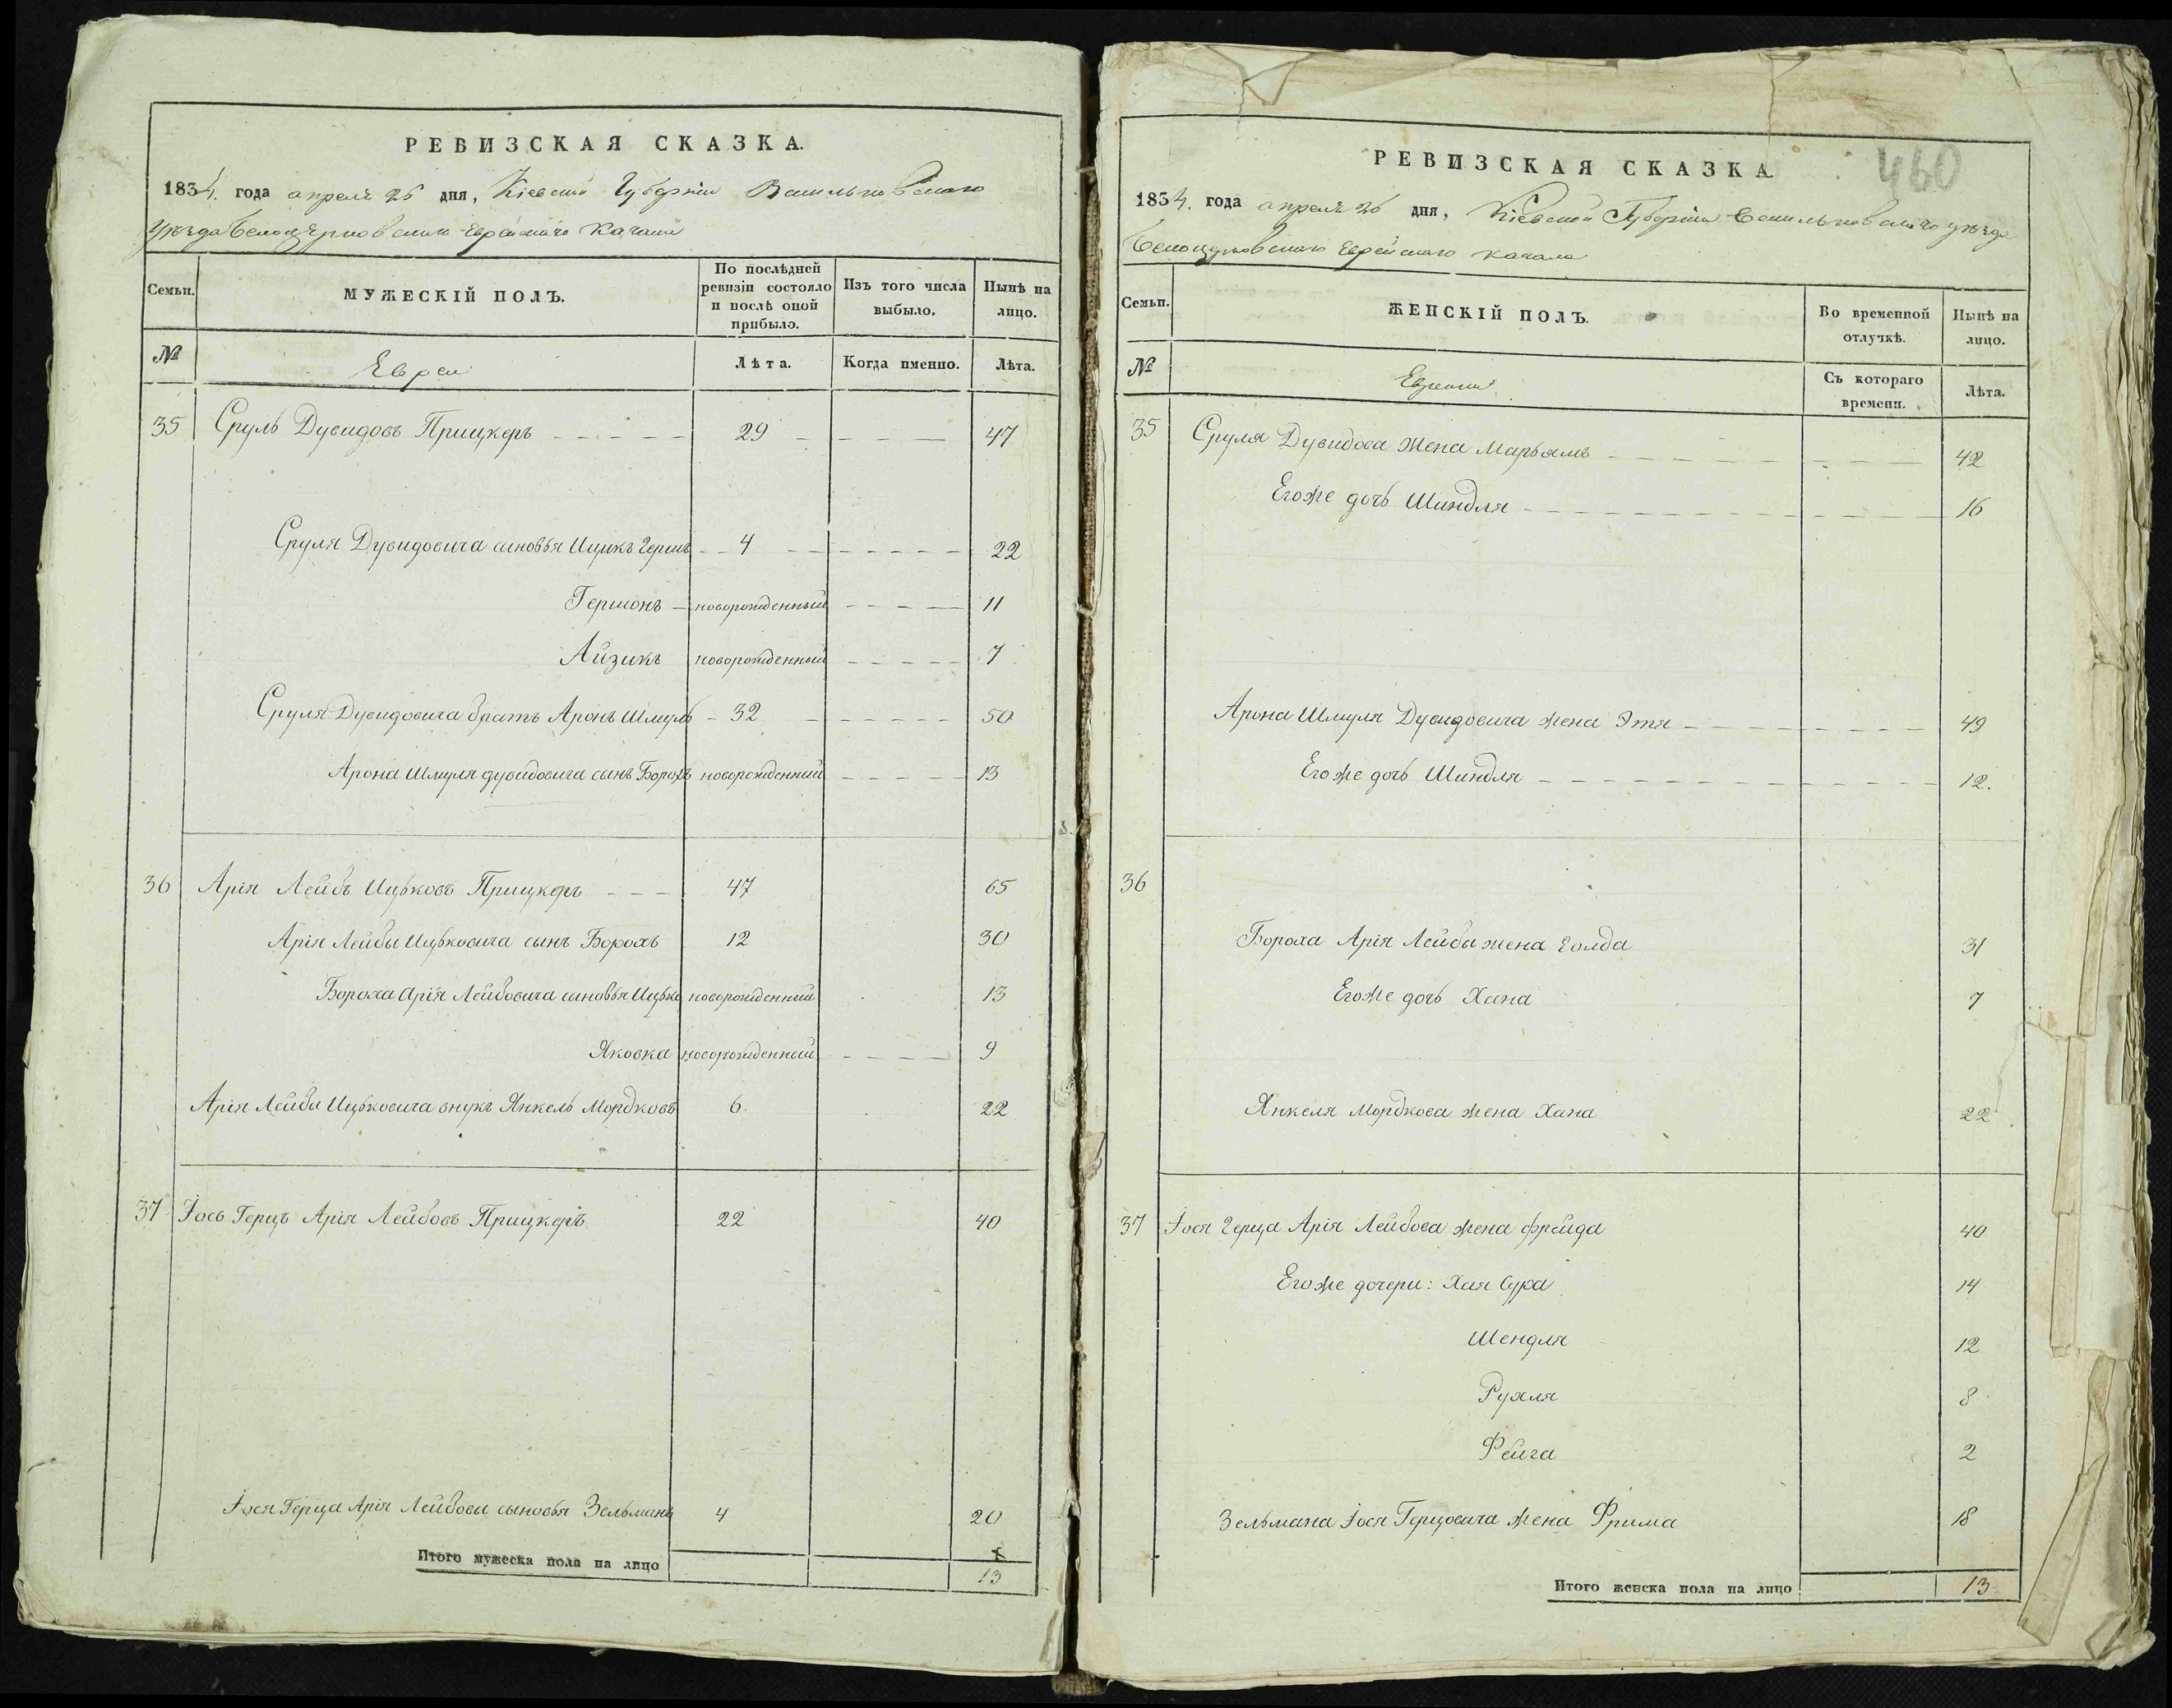 РЕВИЗСКАЯ СКАЗКА.
1834. года апреля 26 дня, Кіевской Губерніи Васильковскаго
уѣзда Белоцерковскаго Еврейскаго Кагала
Семьи.
МУЖЕСКІЙ ПОЛЪ.
По послѣдней ревизіи состояло и послѣ оной прибыло.
Изъ того числа выбыло.
Нынѣ на лицо.
№
Евреи
Лѣта.
Когда именно.
Лѣта.
35 Сруль Дувидовъ Прицкеръ 29 47
Сруля Дувидовича сыновья Ицикъ Гершъ 4 22
Гершонъ новорожденный 11
Айзикъ новорожденный 7
Сруля Дувидовича братъ Аронъ Шмуль 32 50
Арона Шмуля дувидовича сынъ Борохъ новорожденный 13
36 Арія Лейбъ Ицьковъ Прицкеръ 47 65
Арія Лейбы Ицьковича сынъ Борохъ 12 30
Бороха Арія Лейбовича сыновья Ицько новорожденный 13
Яковка новорожденный 9
Арія Лейбы Ицьковича внукъ Янкель Мордковъ 6 22
37 Іось Герцъ Арія Лейбовъ Прицкеръ 22 40
Іося Герца Арія Лейбовы сыновья Зельманъ 4 20
Итого мужеска пола на лицо 13
460
РЕВИЗСКАЯ СКАЗКА.
1834. года апреля 26 дня, Кіевской Губерніи Васильковскаго уѣзда
Белоцерковскаго Еврейскаго Кагала
Семьи.
ЖЕНСКІЙ ПОЛЪ.
Во временной отлучкѣ.
Нынѣ на лицо.
№
Еврейки
Съ котораго времени.
Лѣта.
35 Сруля Дувидова жена Марьямъ 42
Его же дочь Шиндля 16
Арона Шмуля Дувидовича жена Этя 49
Его же дочь Шиндля 12.
36
Бороха Арія Лейбы жена Голда 31
Его же дочь Хана 7
Янкеля Мордкова жена Хана 22
37 Іося Герца Арія Лейбова жена фрейда 40
Его же дочери: Хая Сура 14
Шендля 12
Рухля 8
Фейга 2
Зельмана Іося Герцовича жена Фрима 18
Итого женска пола на лицо 13